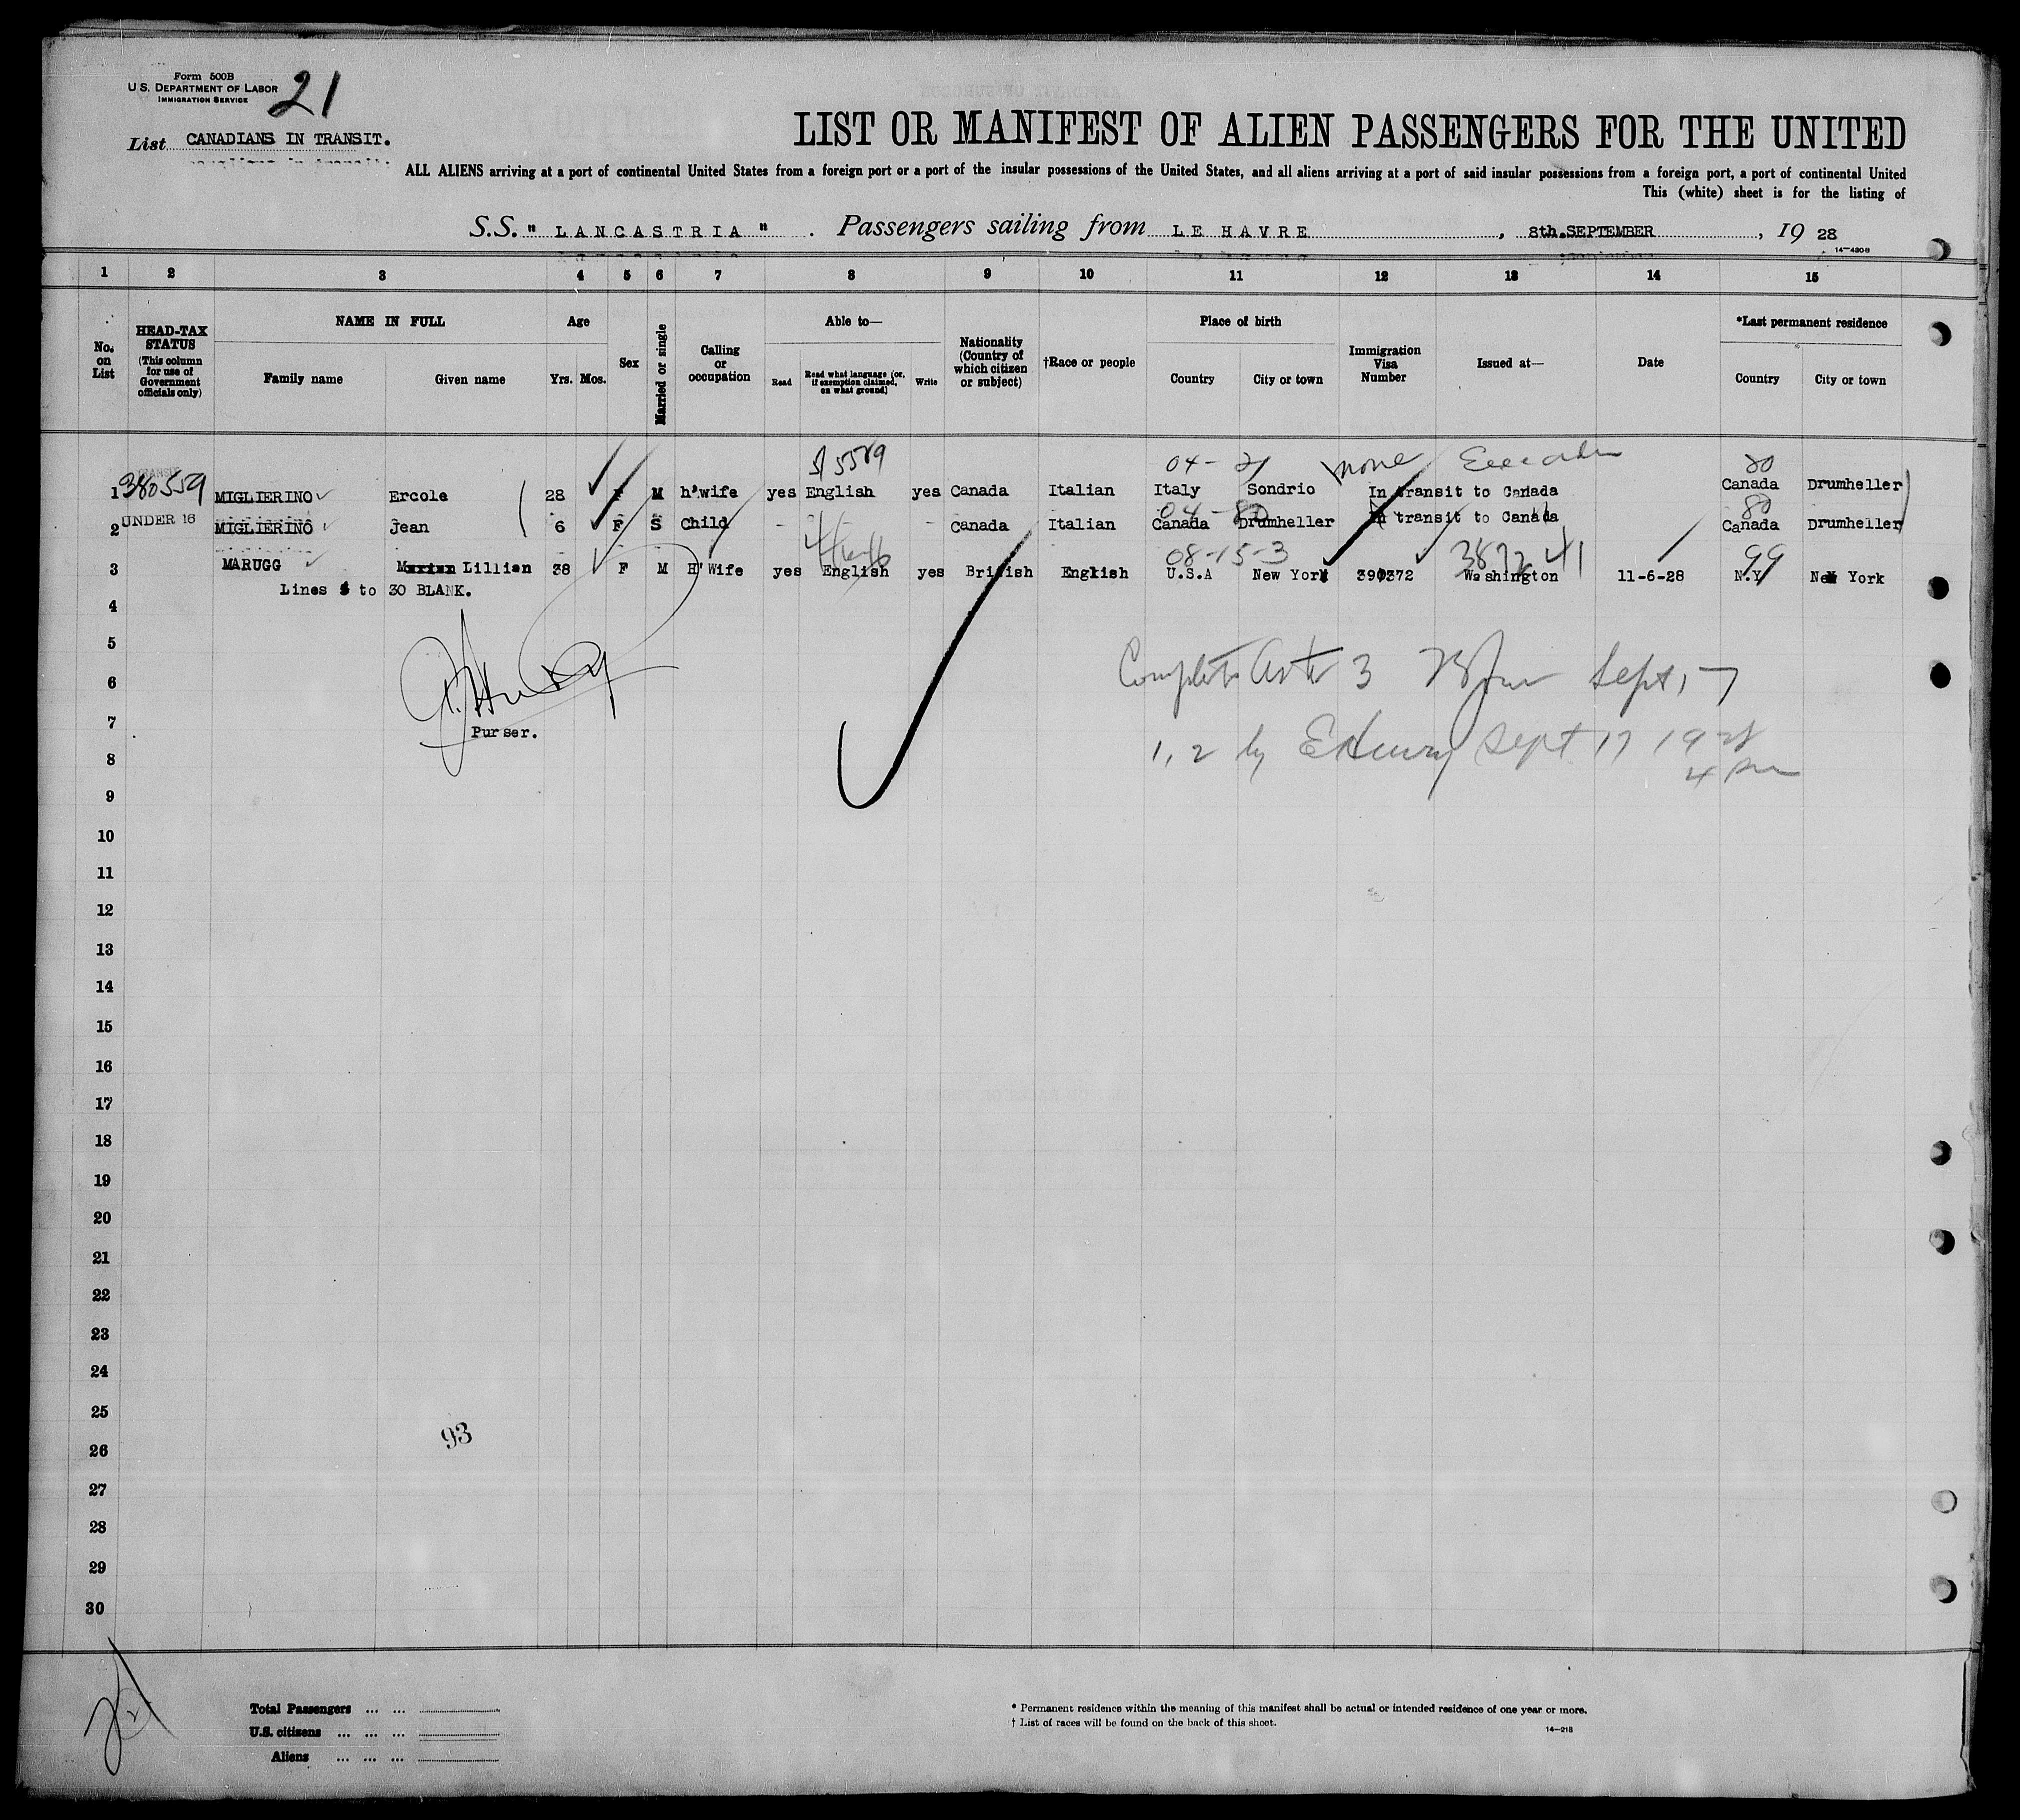 Form 500B
U.S. DEPARTMENT OF LABOR
IMMIGRATION SERVICE
21
List CANADIANS IN TRANSIT.
LIST OR MANIFEST OF ALIEN PASSENGERS FOR THE UNITED
ALL ALIENS arriving at a port of continental United States from a foreign port or a port of the insular possessions of the United States, and all aliens arriving at a port of said insular possessions from a foreign port, a port of continental United
This (white) sheet is for the listing of
S.S. " LANCASTRIA " . Passengers sailing from LE HAVRE , 8th.SEPTEMBER , 19 28
14-4208
1 2 3 4 5 6 7 8 9 10 11 12 13 14 15
No. on List
HEAD-TAX STATUS (This column for use of Government officials only)
NAME IN FULL
Family name Given name
Age
Yrs. Mos.
Sex
Married or single
Calling or occupation
Able to—
Read Read what language (or, if exemption claimed, on what ground) Write
Nationality (Country of which citizen or subject)
†Race or people
Place of birth
Country City or town
Immigration Visa Number
Issued at—
Date
*Last permanent residence
Country City or town
04- 21 none 80
TRANSIT
1 380559 MIGLIERINO Ercole 28 F M h'wife yes English yes Canada Italian Italy Sondrio In transit to Canada Canada Drumheller
04-80 80
2 UNDER 16 MIGLIERINO Jean 6 F S Child - - - Canada Italian Canada Drumheller In transit to Canada Canada Drumheller
08-15-3 99
3 MARUGG Lillian 38 F M H'Wife yes English yes British English U.S.A New York 390372 Washington 11-6-28 N.Y New York
Lines to 30 BLANK.
4
5
6
Complete as to 3 Sept, 17
7
Purser.
1, 2 by Sept 17 1928
8
4 pm
9
10
11
12
13
14
15
16
17
18
19
20
21
22
23
24
25
93
26
27
28
29
30
Total Passengers ... ...
U.S. citizens ... ... ...
Aliens ... ... ...
* Permanent residence within the meaning of this manifest shall be actual or intended residence of one year or more.
† List of races will be found on the back of this sheet.
14-213